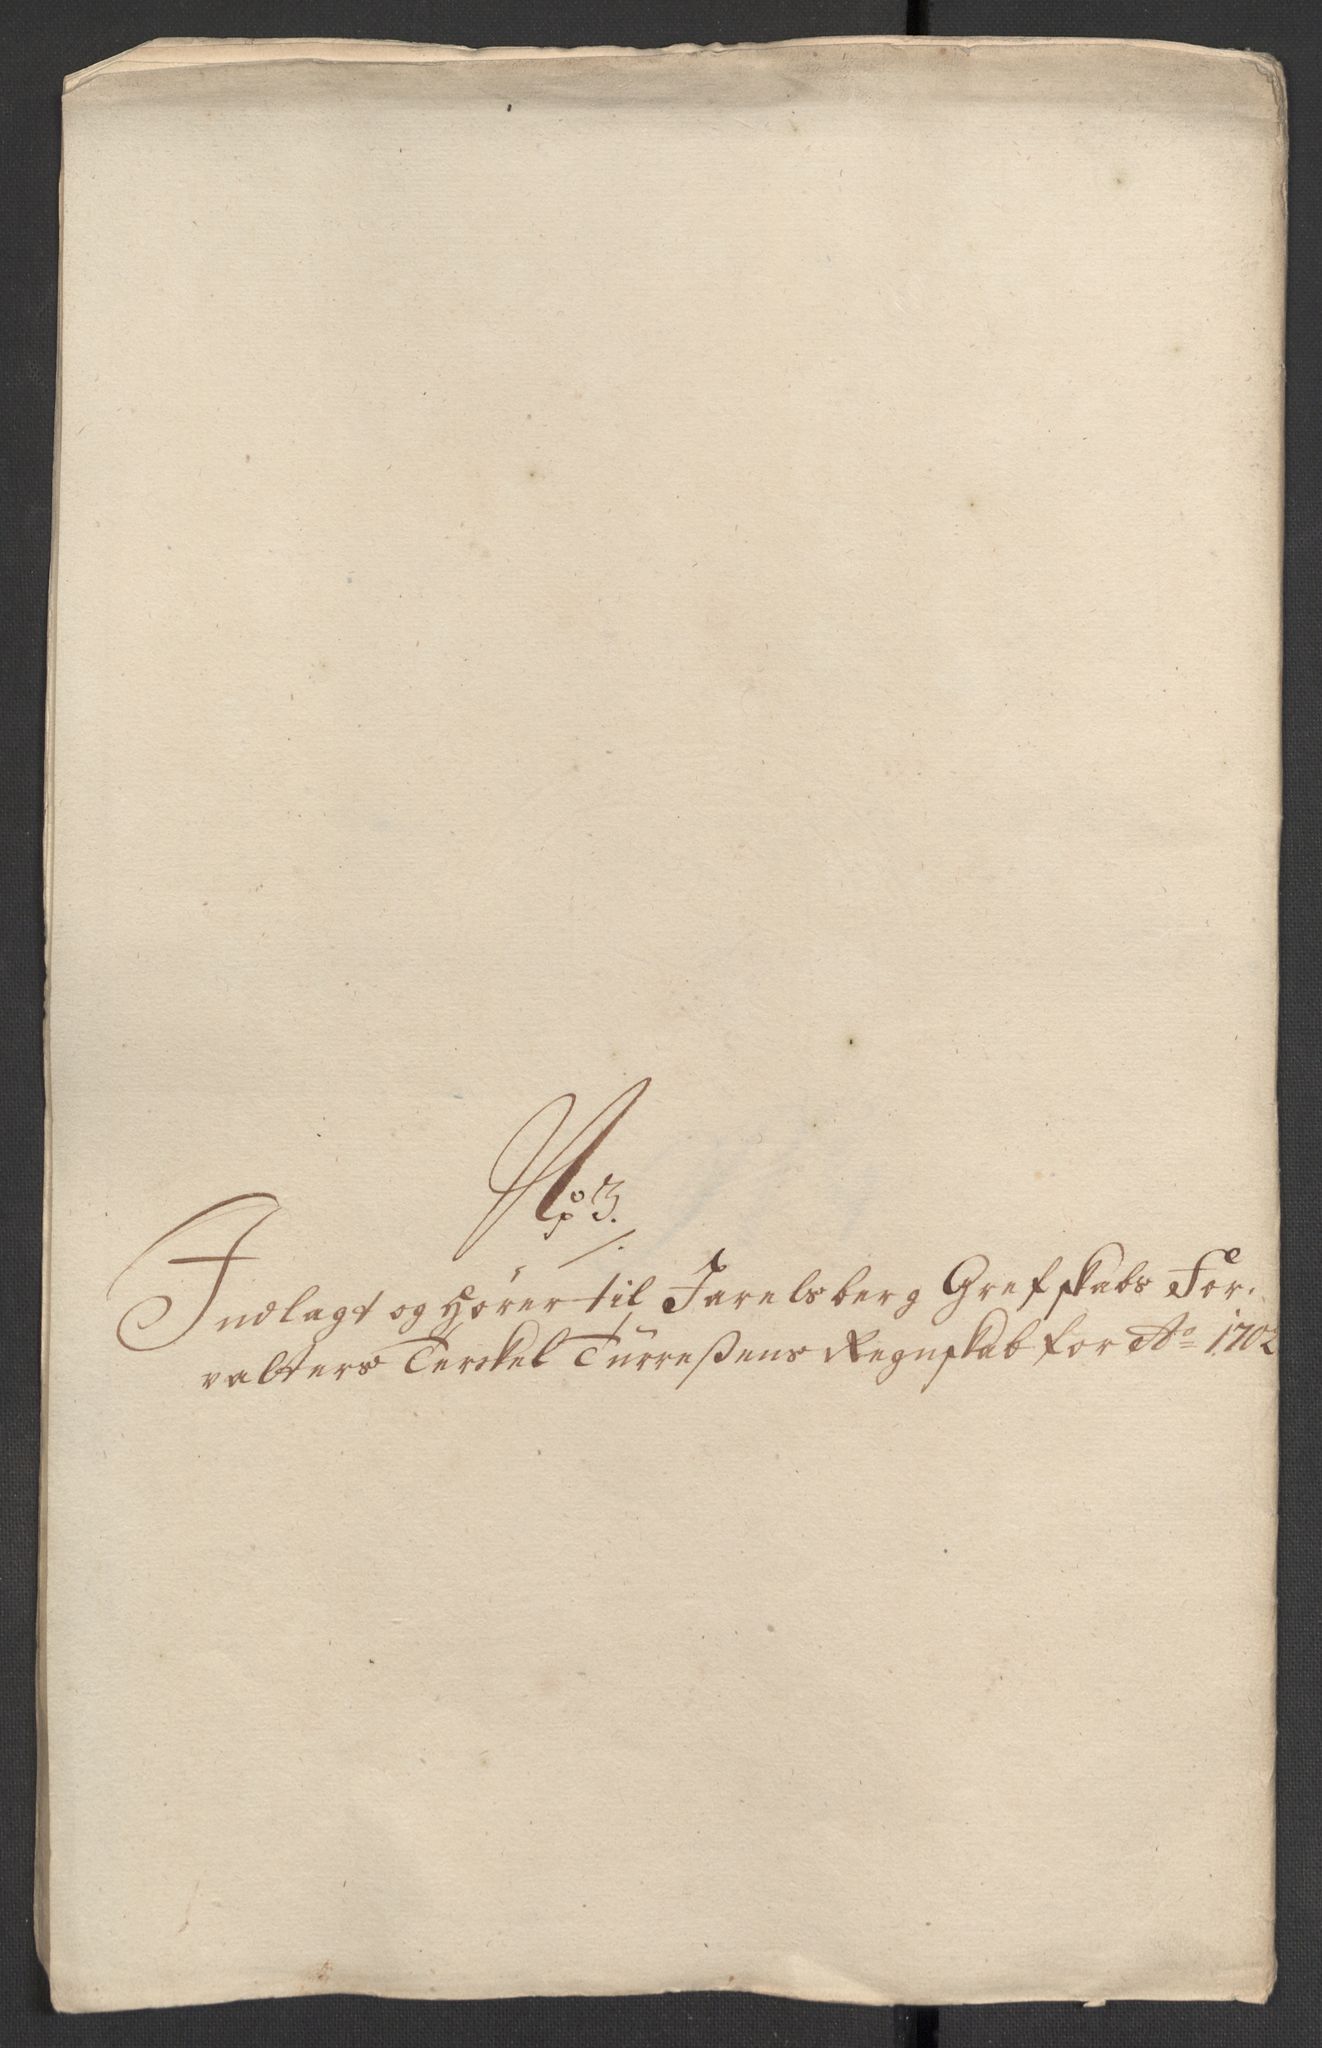 No 3.
Indlagt og hører til Jarelsberg Grefskabs For-
valters Terckel Türreßens Regnskab for Ao 1702